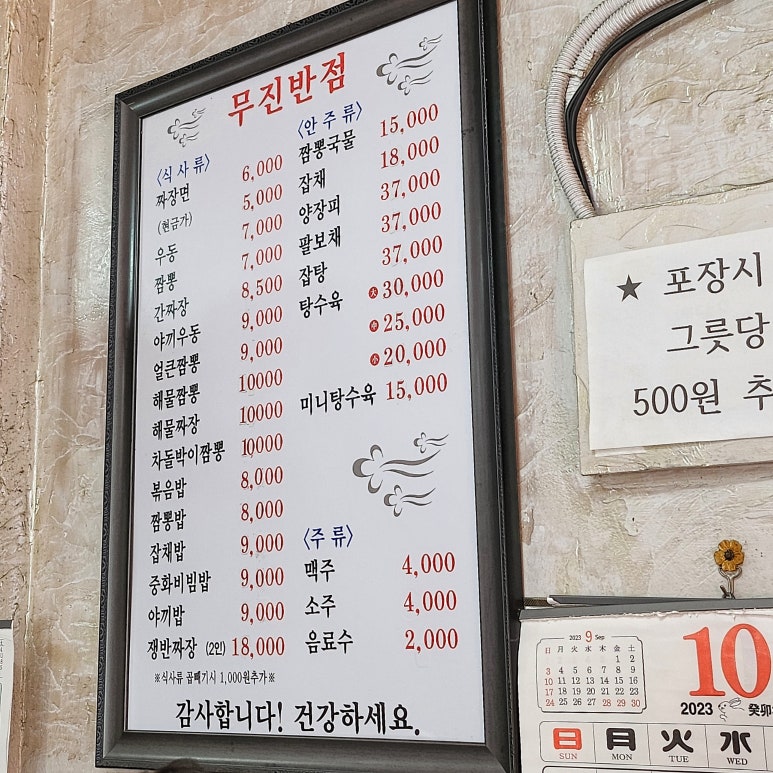 무진반점
<식사류>
짜장면 6,000
(현금가) 5,000
우동 7,000
짬뽕 7,000
간짜장 8,500
야끼우동 9,000
얼큰짬뽕 9,000
해물짬뽕 10000
해물짜장 10000
차돌박이짬뽕 10000
볶음밥 8,000
짬뽕밥 8,000
잡채밥 9,000
중화비빔밥 9,000
야끼밥 9,000
쟁반짜장 (2인) 18,000
※식사류 곱빼기시 1,000원추가※
<안주류>
짬뽕국물 15,000
잡채 18,000
양장피 37,000
팔보채 37,000
잡탕 37,000
탕수육 大 30,000
中 25,000
小 20,000
미니탕수육 15,000
<주류>
맥주 4,000
소주 4,000
음료수 2,000
감사합니다! 건강하세요.
★ 포장시
그릇당
500원 추
2023 9 Sep
日 月 火 水 木 金 土
1 2
3 4 5 6 7 8 9
10 11 12 13 14 15 16
17 18 19 20 21 22 23
24 25 26 27 28 29 30
10
2023 癸卯
日 月 火 水
SUN MON TUE WED